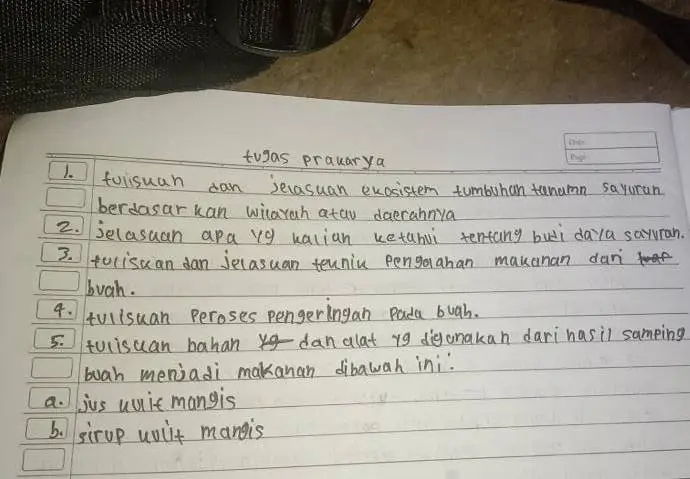 Date:
Page:
tugas prakarya
1. tulisuan dan jelasuan ekosistem tumbuhan tanamn sayuran
berdasarkan wilayah atau daerahnya
2. jelasuan apa yg kalian ketahui tentang budi daya sayuran.
3. tuliskan dan jelasuan teknik pengolahan makanan dari buah
buah.
4. tulisuan peroses pengeringan pada buah.
5. tulisuan bahan yg dan alat yg digunakan dari hasil samping
buah menjadi makanan dibawah ini:
a. jus kulit mangis
b. sirup kulit mangis